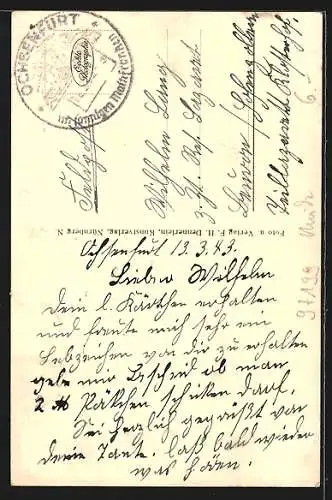 OCHSENFURT
im sonnigen Mainfranken
Echte
Photographie
Feldpost
Wilhelm Lang
z. Zt. Res. Lazarett
Teillazarett
6.-
97199
Foto u. Verlag F. H. Dennerlein, Kunstverlag, Nürnberg N
Ochsenfurt 13.3.43.
Lieber Wilhelm
Dein l. Kärtchen erhalten
und freute mich sehr ein
Lebzeichen von dir zu erhalten
gebe mir Bescheid ob man
2 Päkchen schicken darf.
Sei herzlich gegrüßt von
deine Tante. laß bald wieder
was hören.